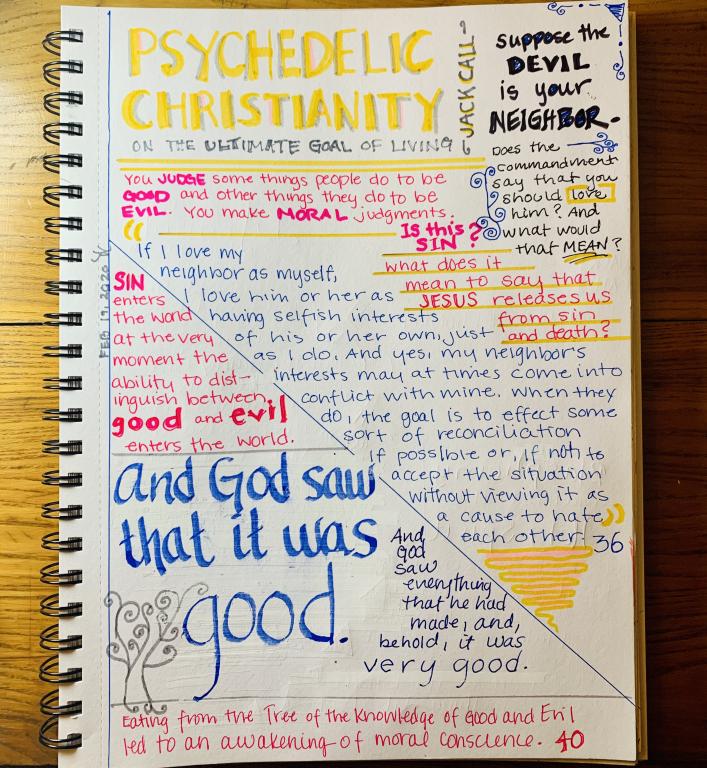 PSYCHEDELIC
CHRISTIANITY
ON THE ULTIMATE GOAL OF LIVING
JACK CALL
suppose the
DEVIL
is your
NEIGHBOR.
Does the
commandment
say that you
should love
him? And
what would
that MEAN?
You JUDGE some things people do to be
GOOD and other things they do to be
EVIL. You make MORAL judgments.
Is this
SIN?
what does it
mean to say that
JESUS releases us
from sin
and death?
“
If I love my
neighbor as myself,
I love him or her as
having selfish interests
of his or her own, just
as I do. And yes, my neighbor's
interests may at times come into
conflict with mine. When they
do, the goal is to effect some
sort of reconciliation
if possible or, if not, to
accept the situation
without viewing it as
a cause to hate
each other. ” 36
FEB 19. 2020
SIN
enters
the world
at the very
moment the
ability to dist-
inguish between
good and evil
enters the world.
and God saw
that it was
good.
And
God
saw
everything
that he had
made, and,
behold, it was
very good.
Eating from the Tree of the Knowledge of Good and Evil
led to an awakening of moral conscience. 40